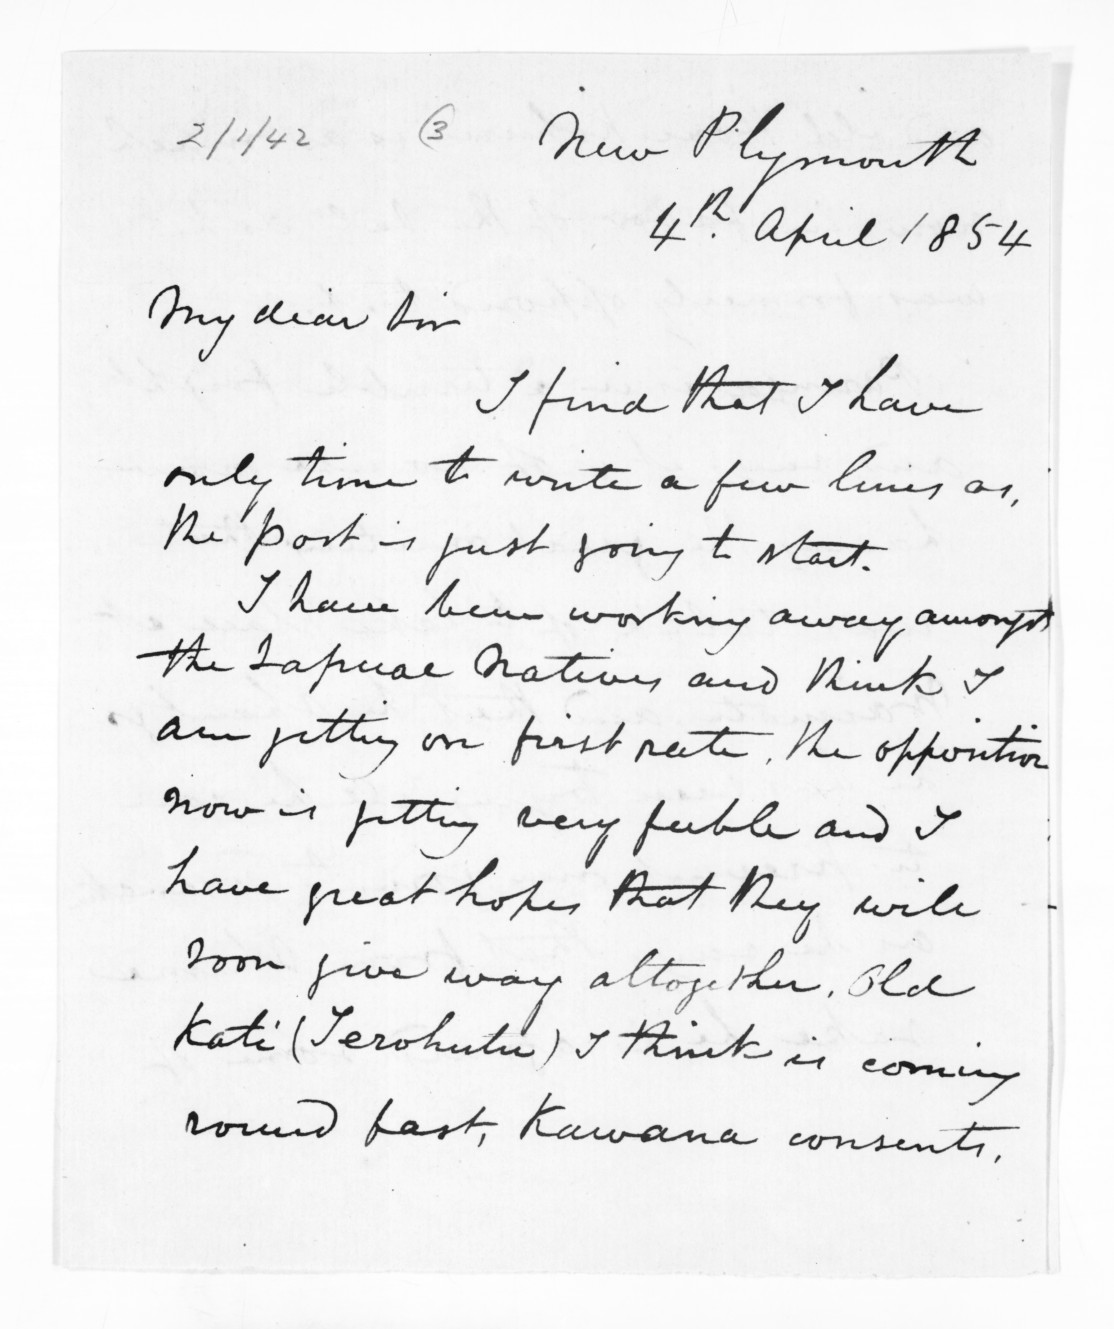 2/1/42 (3
New Plymouth
4th. April 1854
My dear Sir
I find that I have
only time to write a few lines as,
the post is just going to start.
I have been working away amongst
the Tapuae Natives and think I
am getting on first rate, the opposition
now is getting very feeble and I
have great hopes that they will
soon give way altogether. Old
Kati (Terohutu) I think is coming
round fast, Kawana consents.